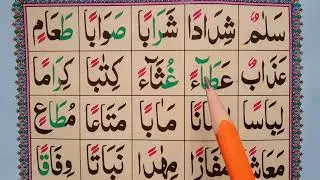 سَلٰمٌ شِدَادًا شَرَابًا صَوَابًا طَعَامٍ
عَذَابٌ عَطَآءً غُثَآءً كِتٰبًا كِرَامًا
لِبَاسًا مَاٰبًا مَتَاعًا مُطَاعٍ
مَعَاشًا مَفَازًا مِهٰدًا نَبَاتًا وِفَاقًا